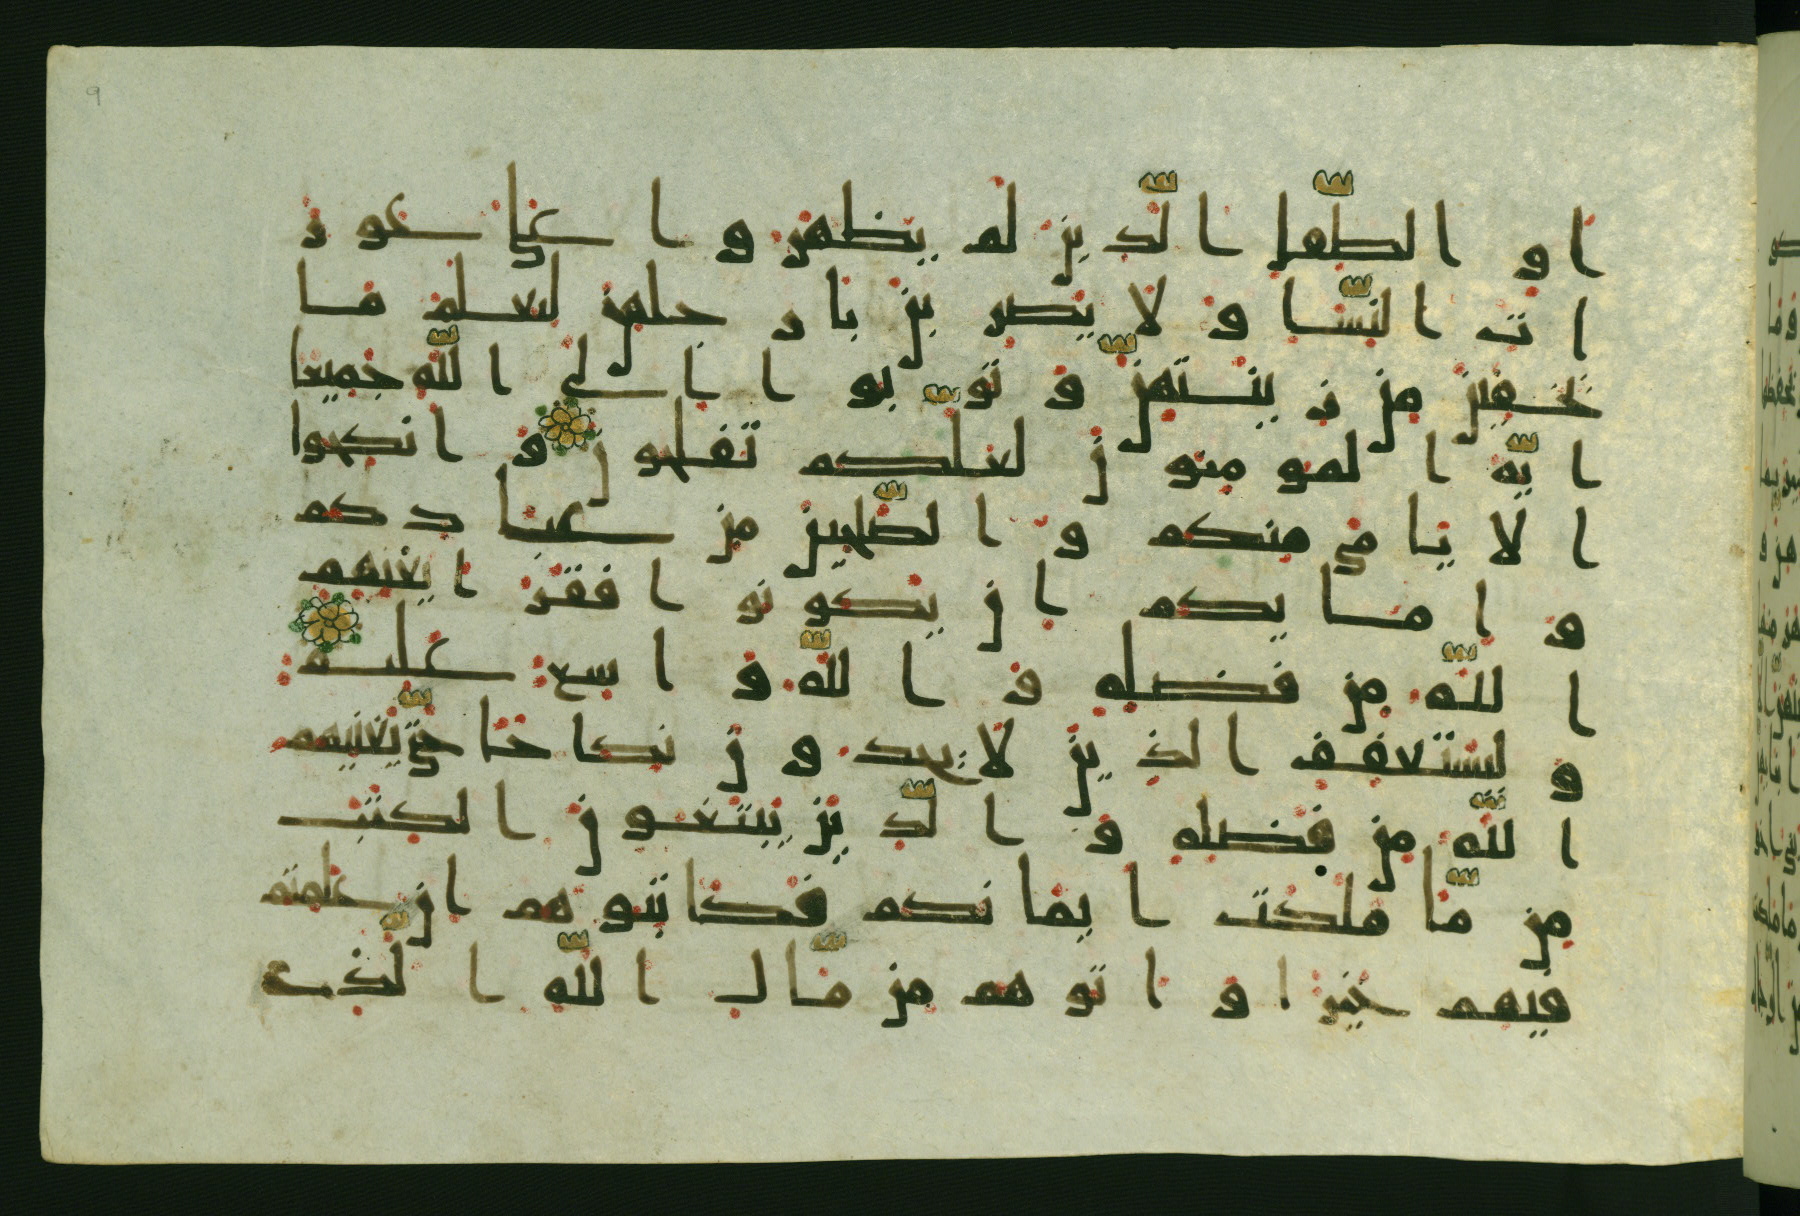 9
او الطفل الذين لم يظهروا على عور
ات النسا ولا يضربن بارجلهن ليعلم ما
يخفين من زينتهن وتوبوا الى الله جميعا
ايه المومنون لعلكم تفلحون وانكحوا
الايامى منكم والصلحين من عبادكم
وامايكم ان يكونوا فقرا يغنيهم
الله من فضله والله واسع عليم
وليستعفف الذين لا يجدون نكاحا حتى يغنيهم
الله من فضله والذين يبتغون الكتب
مما ملكت ايمانكم فكاتبوهم ان علمتم
فيهم خيرا واتوهم من مال الله الذى